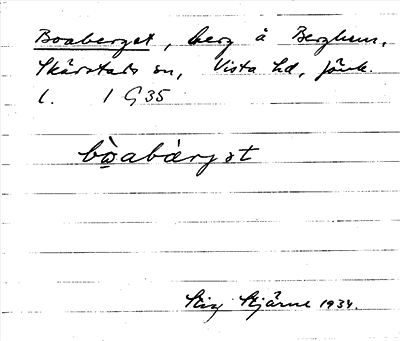 Boaberget, berg å Berghem,
Skärstads sn, Vista hd, Jönk.
l. 1 G 35
bò̤abàrgət
Stig Stjärne 1934.